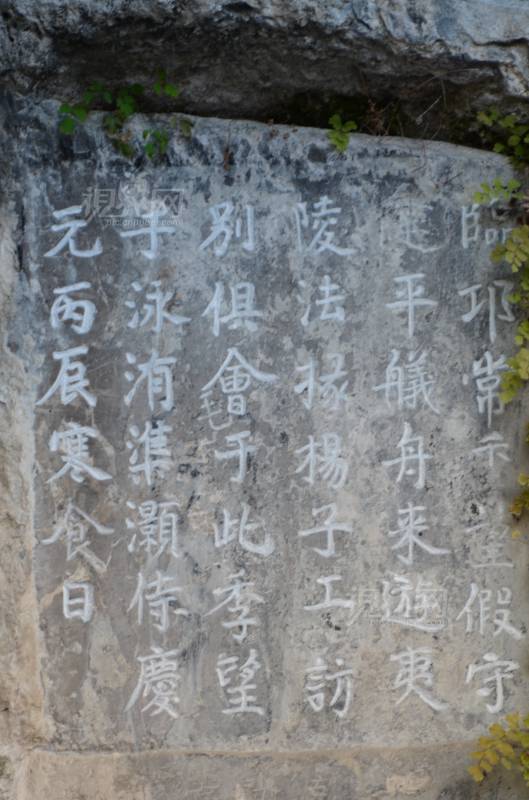 臨邛常假守
建平艤舟来遊夷
陵法掾揚子工訪
别俱會于此季望
子泳洧渠灝侍慶
元丙辰寒食日